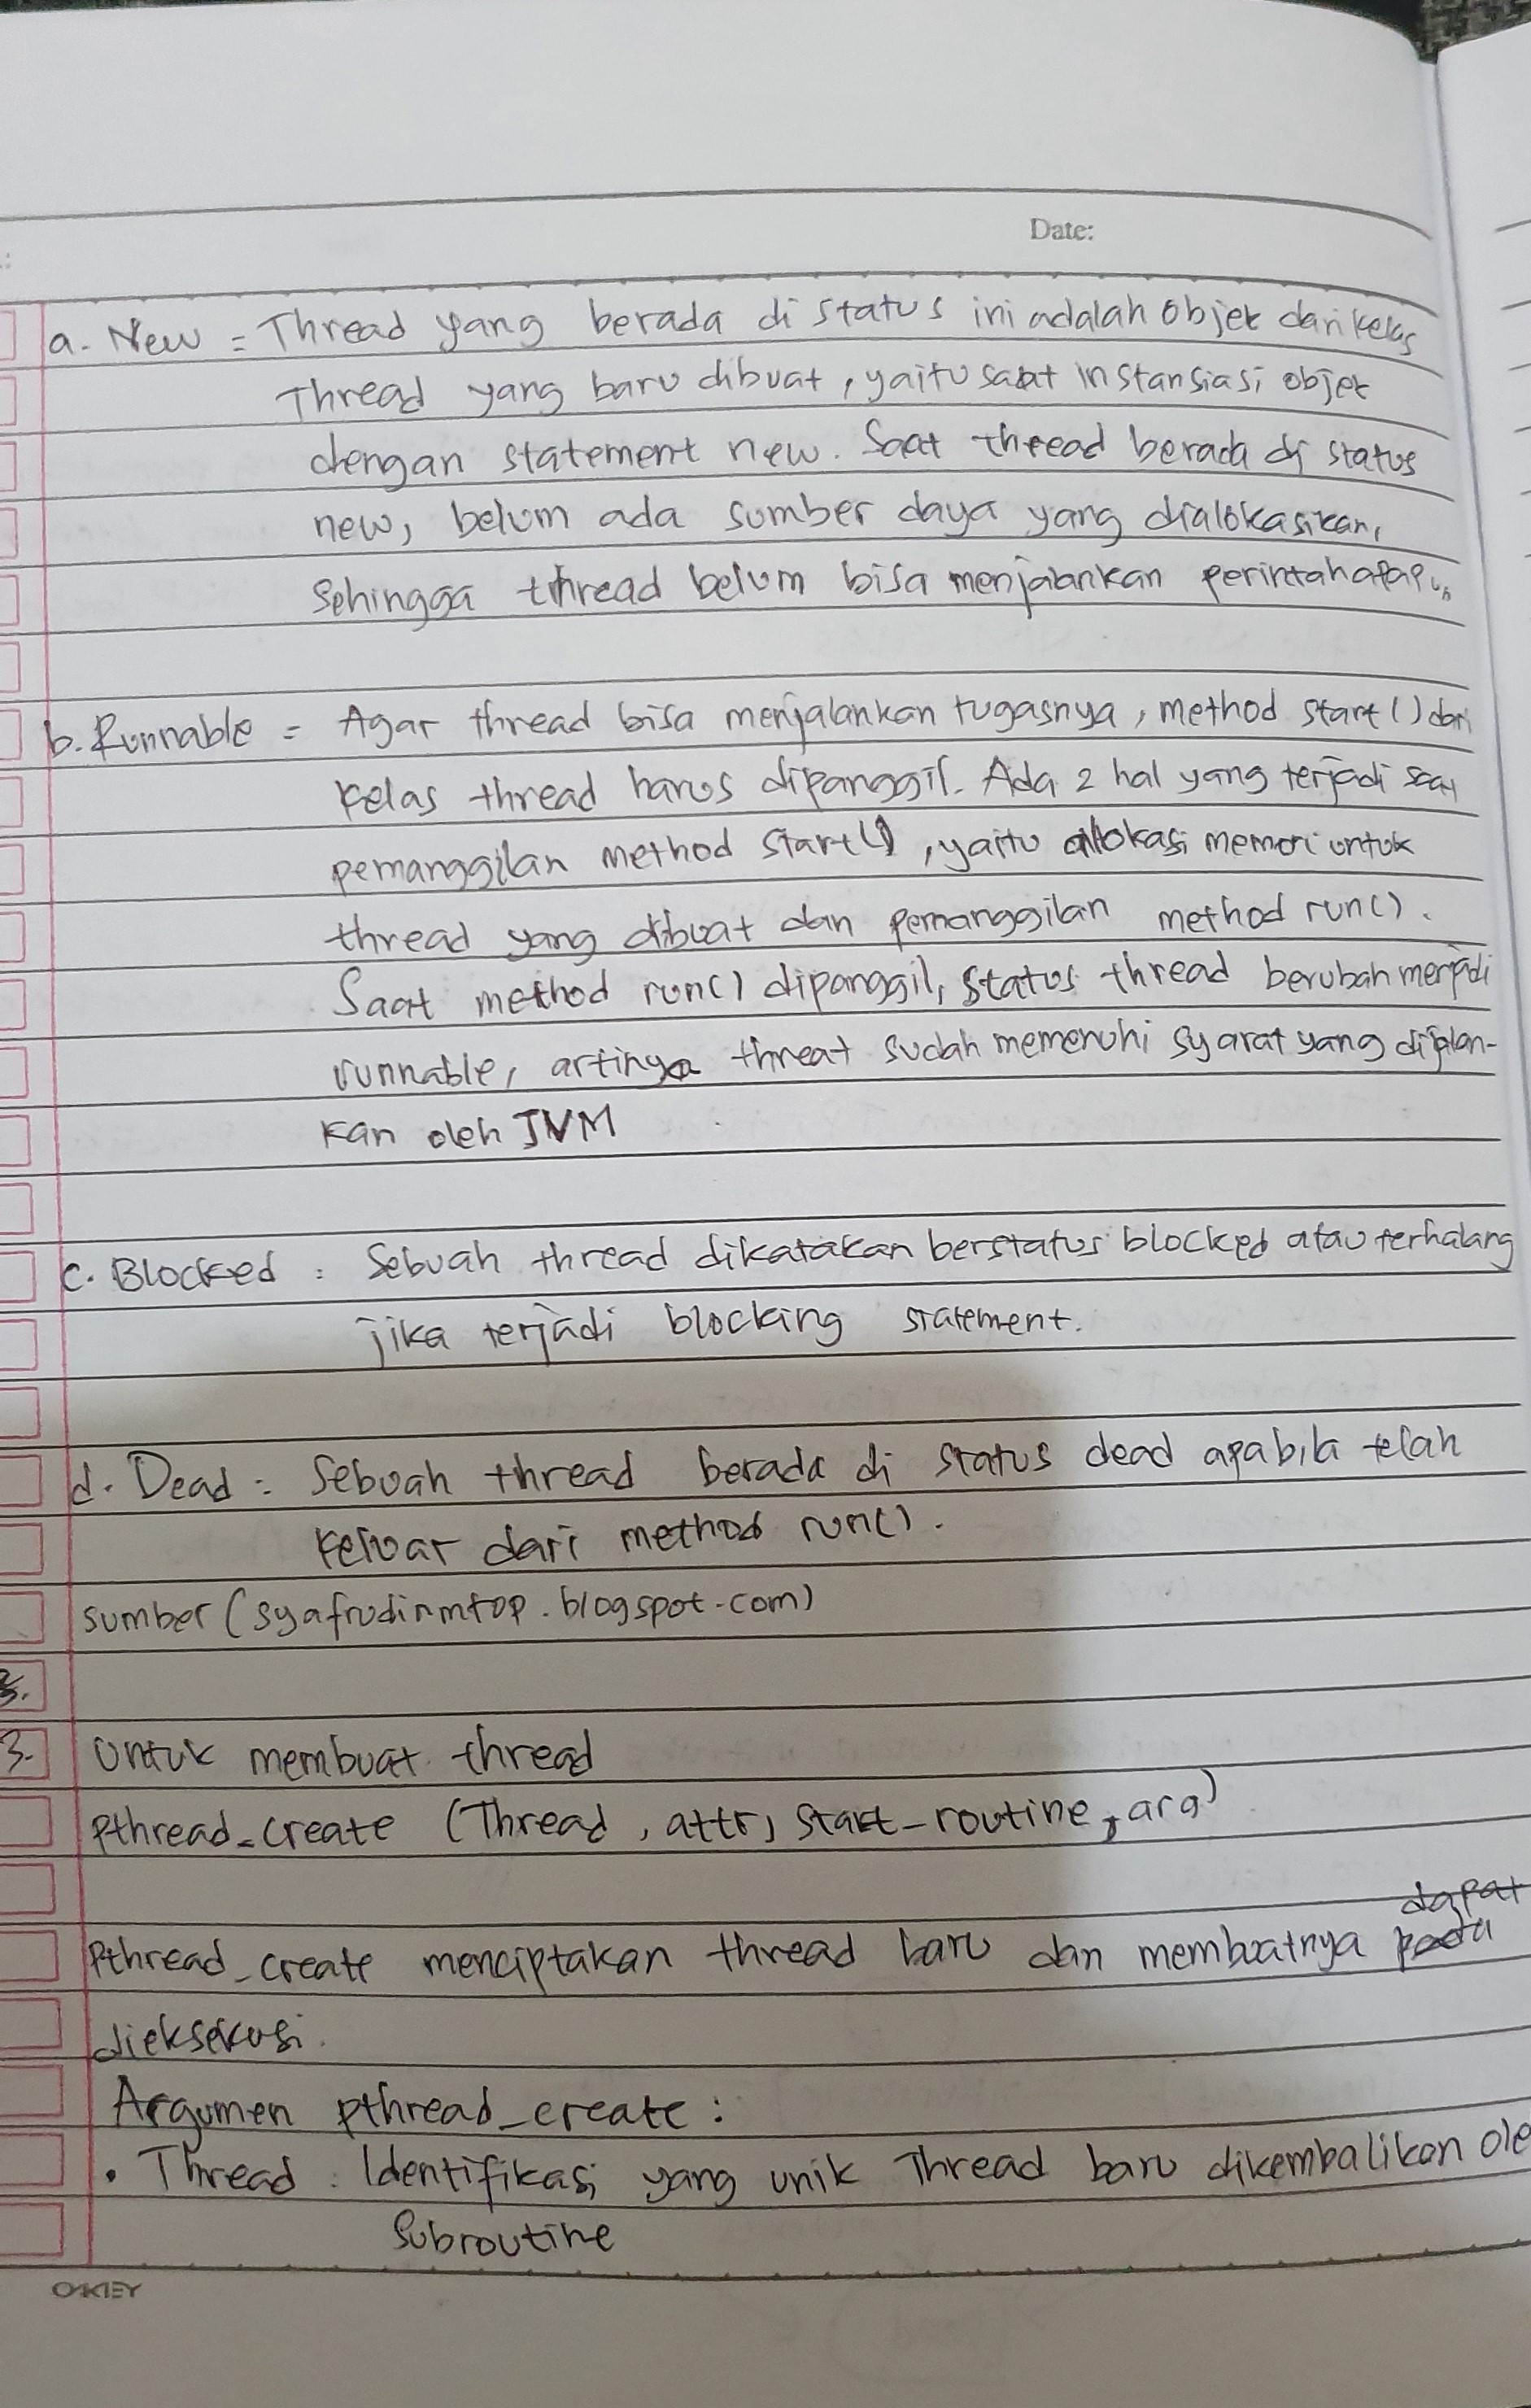 Date:
a. New = Thread yang berada di status ini adalah objek dari kelas
Thread yang baru dibuat, yaitu saat instansiasi objek
dengan statement new. Saat thread berada di status
new, belum ada sumber daya yang dialokasikan,
Sehingga thread belum bisa menjalankan perintah apapun
b. Runnable = Agar thread bisa menjalankan tugasnya, method start() dari
kelas thread harus dipanggil. Ada 2 hal yang terjadi saat
pemanggilan method start(), yaitu alokasi memori untuk
thread yang dibuat dan pemanggilan method run().
Saat method run() dipanggil, status thread berubah menjadi
runnable, artinya threat sudah memenuhi syarat yang dijalan-
kan oleh JVM
c. Blocked : Sebuah thread dikatakan berstatus blocked atau terhalang
jika terjadi blocking statement.
d. Dead : Sebuah thread berada di status dead apabila telah
keluar dari method run().
sumber (syafrudinmtop.blogspot.com)
3.
3. Untuk membuat thread
Pthread_create (Thread, attr, start_routine, arg)
dapat
Pthread_create menciptakan thread baru dan membuatnya pada
dieksekusi.
Argumen pthread_create :
• Thread : Identifikasi yang unik Thread baru dikembalikan ole
Subroutine
OKEY